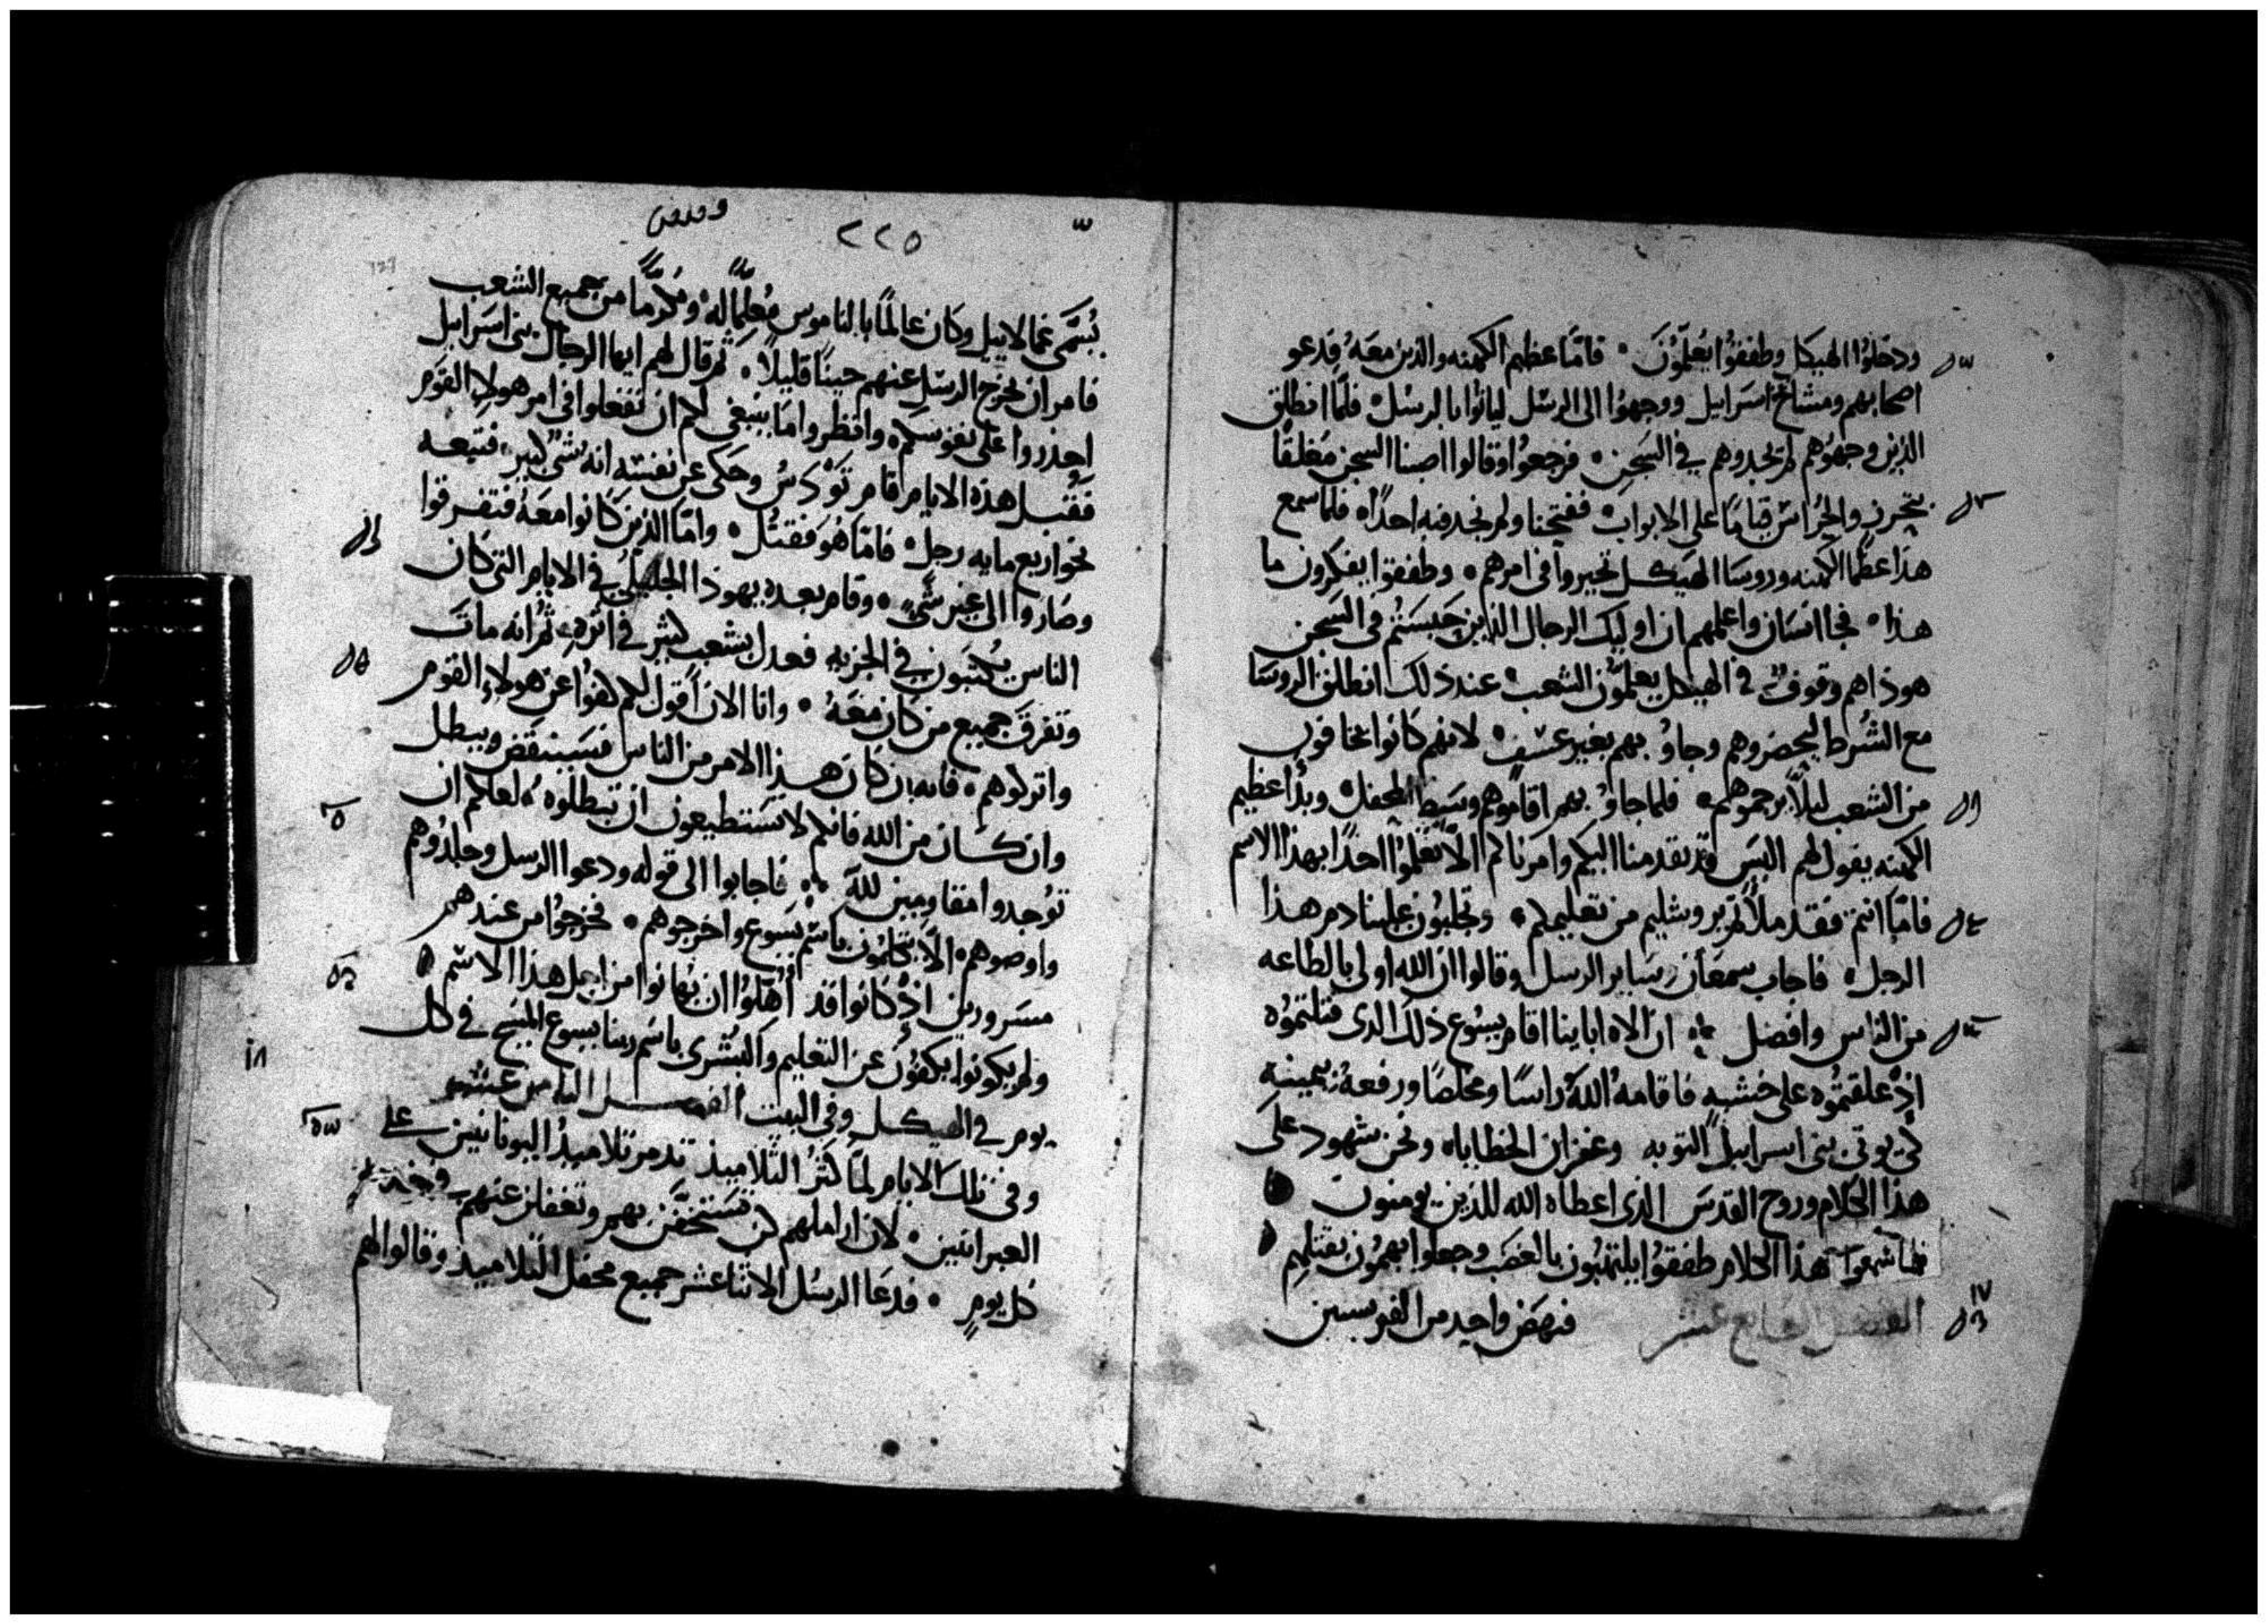 ودخلوا الهيكل وطفقوا يعلمون ۰ فامّا عظيم الكهنه والذين معه فدعو
اصحابهم ومشايخ اسراييل ووجهوا الى الرسل لياتوا بالرسل ۰ فلما انطلق
الذين وجهوهم لم يجدوهم في السجن ۰ فرجعوا وقالوا اصبنا السجن مغلقًا
بتحرز والحراس قيامًا على الابواب ۰ ففتحنا ولم نجد فيه احدًا ۰ فلما سمع
هذا عظما الكهنه وروسا الهيكل تحيروا في امرهم ۰ وطفقوا يفكرون ما
هذا ۰ فجا انسان واعلمهم ان اوليك الرجال الذين حبستم في السجن
هوذا هم وقوف في الهيكل يعلمون الشعب ۰ عند ذلك انطلق الروسا
مع الشرط ليحضروهم وجاو بهم بغير عسف ۰ لانهم كانوا يخافون
من الشعب ليلا يرجموهم ۰ فلما جاو بهم اقاموهم وسط المحفل ۰ وبدا عظيم
الكهنه يقول لهم اليس قد تقدمنا اليكم وامرناكم الا تعلموا احدًا بهذا الاسم
فامّا انتم فقد ملاتم يروشليم من تعليمكم ۰ وتجلبون علينا دم هذا
الرجل ۰ فاجاب سمعان وساير الرسل وقالوا ان الله اولى بالطاعه
من الناس وافضل ۰ ان الاه اباينا اقام يسوع ذلك الذى قتلتموه
اذ علقتموه على خشبه فاقامه الله راسًا ومخلصًا ورفعه بيمينه
كي يوتى بنى اسراييل التوبه وغفران الخطايا ۰ ونحن شهود على
هذا الكلام وروح القدس الذى اعطاه الله للذين يومنون
فلما سمعوا هذا الكلام طفقوا يلتهبون بالغضب وجعلوا يهمون بقتلهم
۱۷
الفصل السابع عشر فنهض واحد من الفريسيين
۲۲٥
يسمّى غمالاييل وكان عالمًا بالناموس معلمًا له ۰ ومكرمًا من جميع الشعب
فامر ان يخرج الرسل عنهم حينًا قليلاً ۰ ثم قال لهم ايها الرجال بنى اسراييل
احذروا على نفوسكم ۰ وانظروا ما ينبغى لكم ان تفعلوا فى امر هولا القوم
فقبل هذه الايام اقام تودس وحكى عن نفسه انه شى كبير ۰ فتبعه
نحو اربع مايه رجل ۰ فامّا هو فقتل ۰ وامّا الذين كانوا معه فتفرقوا
وصاروا الى غير شى ۰ وقام بعده يهوذا الجليلي في الايام التي كان
الناس يكتبون في الجزيه فعدل بشعب كثير في اثره ۰ ثم انه مات
وتفرق جميع من كان معه ۰ وانا الان اقول لكم الهوا عن هولاء القوم
واتركوهم ۰ فانه ان كان هذا الامر من الناس فسينتقض ويبطل
وان كان من الله فانكم لا تستطيعون ان تبطلوه ۰ لعلكم ان
توجدوا مقاومين لله ۰ فاجابوا الى قوله ودعوا الرسل وجلدوهم
واوصوهم ۰ الا يتكلمون باسم يسوع واخرجوهم ۰ فخرجوا من عندهم
مسرورين اذ كانوا قد اهلوا ان يهانوا من اجل هذا الاسم
ولم يكونوا يكفون عن التعليم والبشرى باسم ربنا يسوع المسيح في كل
يوم في الهيكل وفي البيت الفصل الثامن عشر
۱۸
وفى تلك الايام لما كثر التلاميذ تذمر تلاميذ اليونانيين على
العبرانيين ۰ لان اراملهم كن تستخفن بهم وتغفلن عنهم
كل يوم ۰ فدعا الرسل الاثنا عشر جميع محفل التلاميذ وقالوا لهم